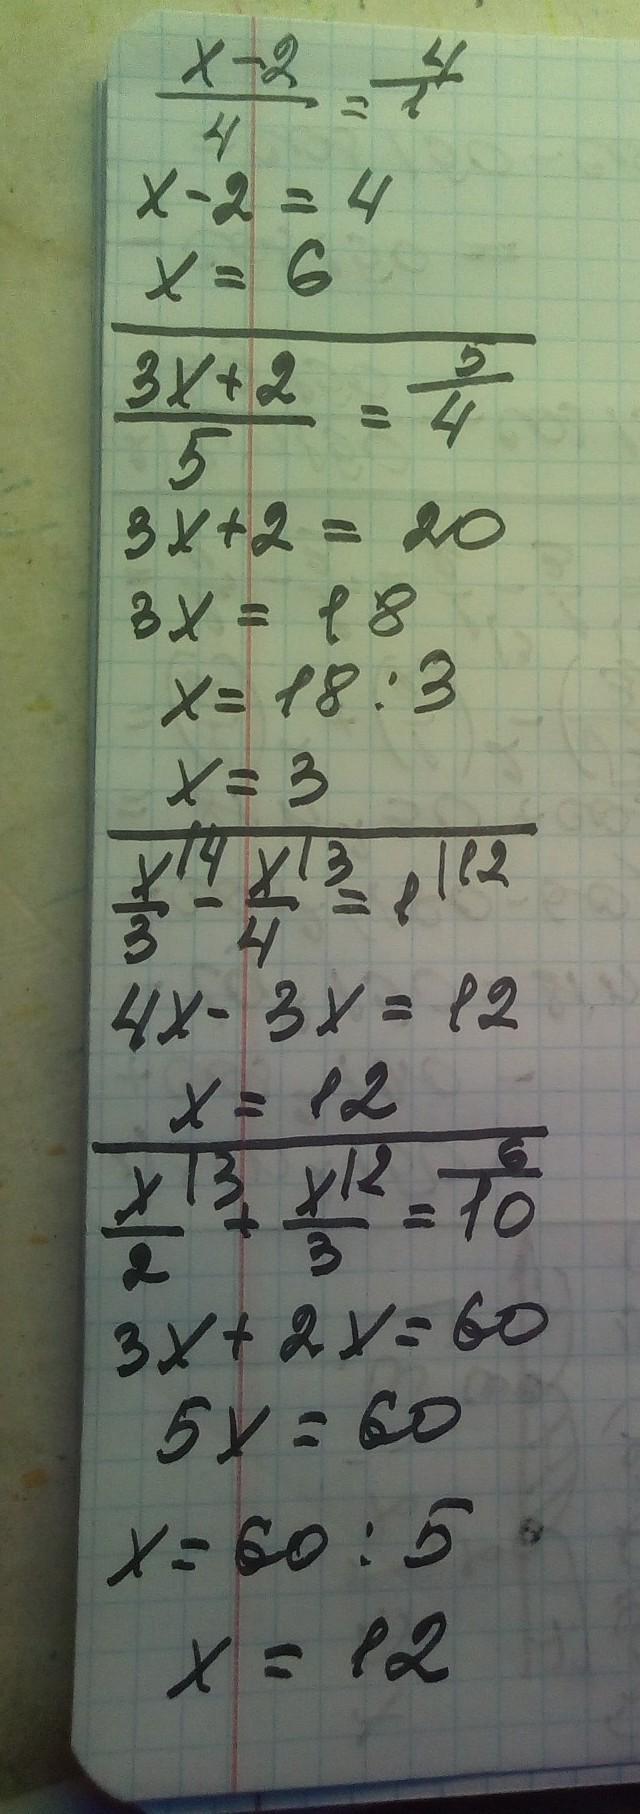 x-2/4 = 4/1
x-2 = 4
x = 6
3x+2/5 = 5/4
3x+2 = 20
3x = 18
x = 18 : 3
x = 3
x/3 |4 - x/4 |3 = 1 |12
4x - 3x = 12
x = 12
x/2 |3 + x/3 |2 = 6/10
3x + 2x = 60
5x = 60
x = 60 : 5
x = 12